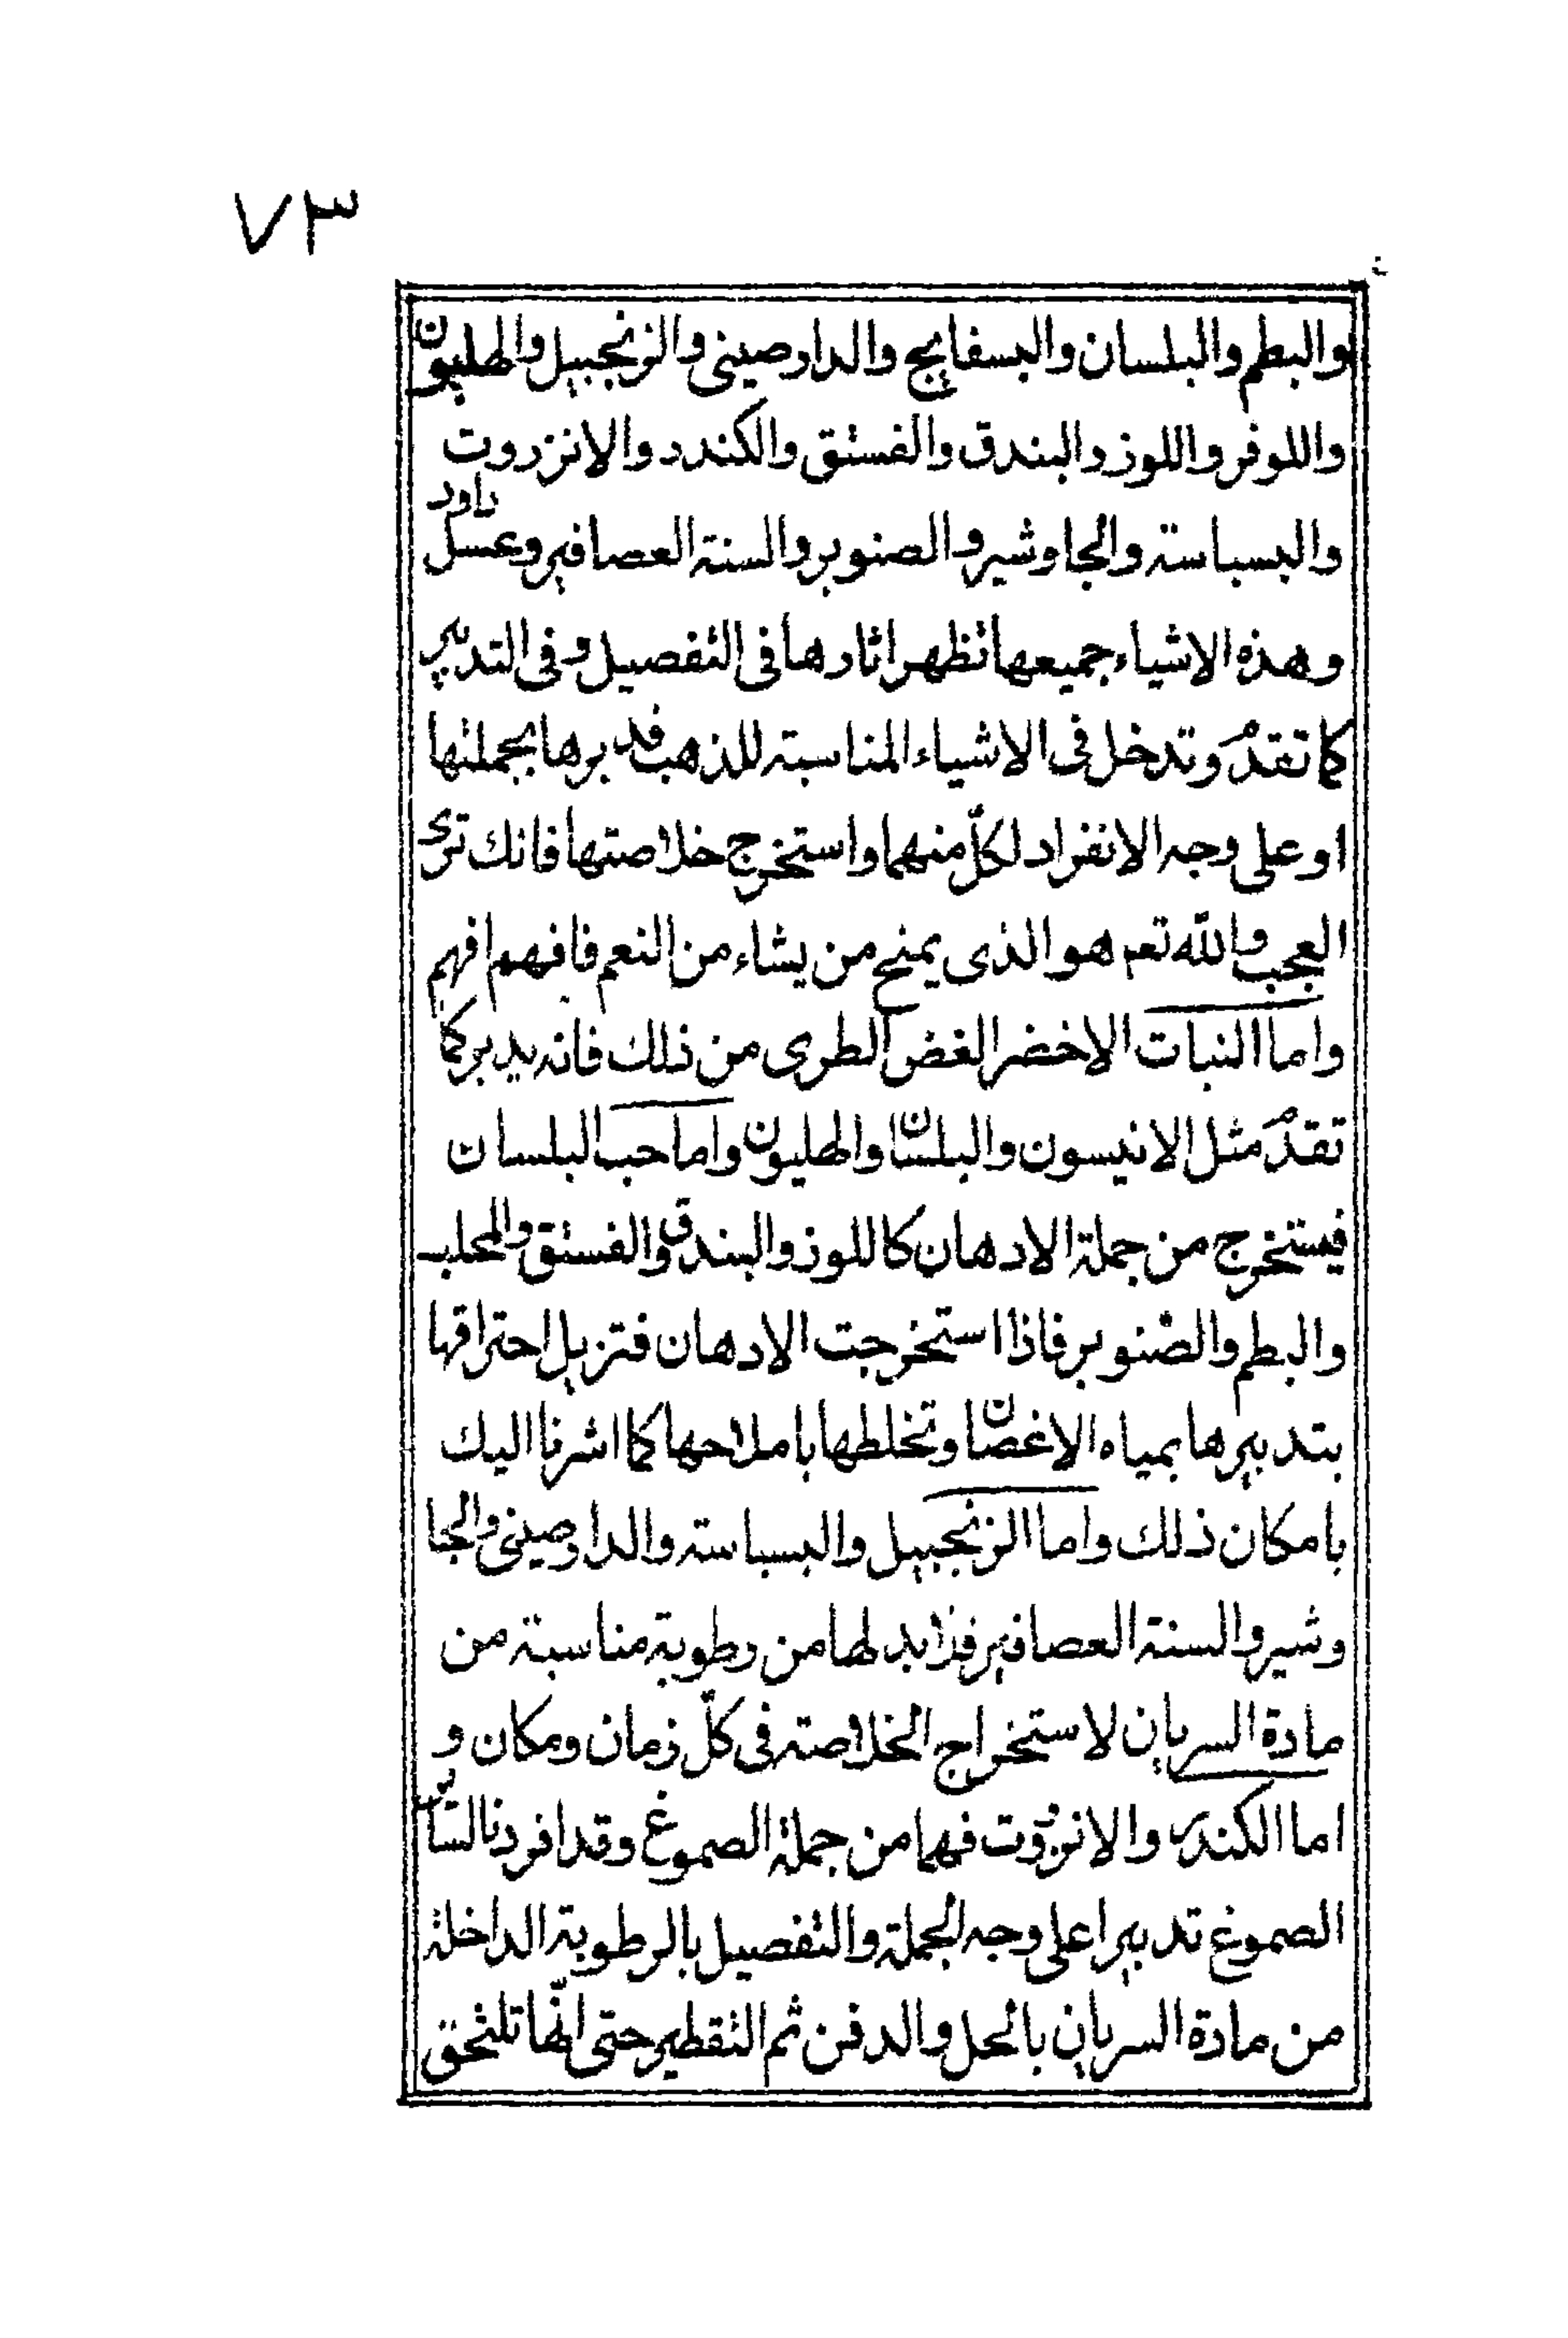 ٧٣
والبطم والبلسان والبسفايج والدارصينى والزنجبيل والهليون
واللوفر واللوز والبندق والفستق والكندر والانزروت
والبسباسة والجاوشير والصنوبر والسنة العصافير وعسل داود
وهذه الاشياء جميعها تظهر اثارها فى التفصيل وفى التدبير
كما تقدم وتدخل فى الاشياء المناسبة للذهب فدبرها بجملتها
او على وجه الانفراد لكلّ منهما واستخرج خلاصتها فانك ترى
العجب والله تعم هو الذى يمنح من يشاء من النعم فافهم افهم
واما النبات الاخضر الغض الطرى من ذلك فانه يدبر كما
تقدم مثل الانيسون والبلسان والهليون واما حب البلسان
فيستخرج من جملة الادهان كاللوز والبندق والفستق والمحلب
والبطم والصنوبر فاذا استخرجت الادهان فتزيل احتراقها
بتدبيرها بمياه الاغصان وتخلطها باملاحها كما اشرنا اليك
بامكان ذلك واما الزنجبيل والبسباسة والدارصينى والجا
وشير والسنة العصافير فلابد لها من رطوبة مناسبة من
مادة السريان لاستخراج الخلاصة فى كلّ زمان ومكان و
اما الكندر والانزروت فهما من جملة الصموغ وقد افردنا لسائر
الصموغ تدبيرا على وجه الجملة والتفصيل بالرطوبة الداخلة
من مادة السريان بالحل والدفن ثم التقطير حتى انّها تلتحق